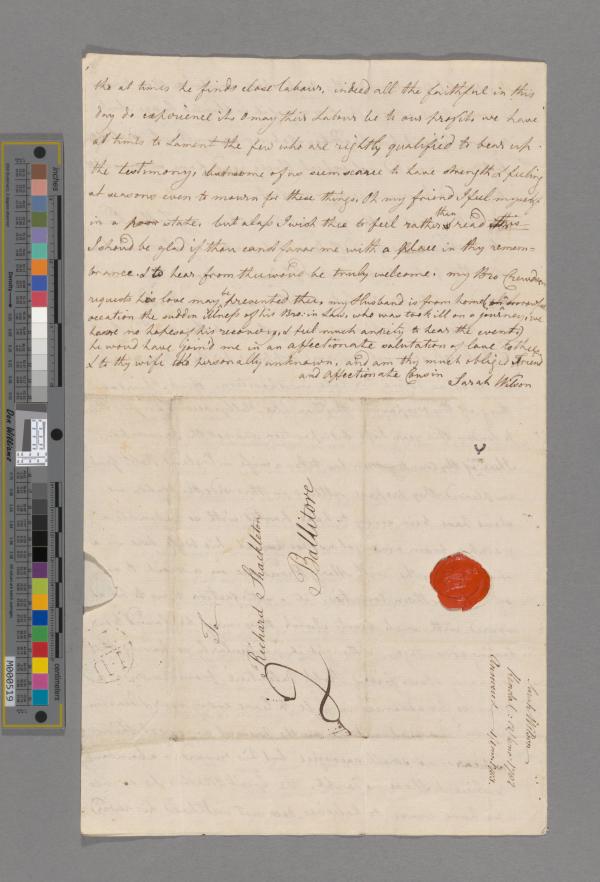 tho at times he finds close labour, indeed all the faithful in this
day do experience it, O may their Labour be to our profit, we have
at times to Lament the few who are rightly qualified to bear up
the testimony, but some of us seem scarce to have strength & feeling
at seasons even to mourn for these things. Oh my friend I feel myself
in a poor state, but alas I wish thee to feel rather than read this
I should be glad if thou canst favor me with a place in thy remem-
brance. & to hear from thee would be truly welcome. my Bro Crewdson
requests his love may be presented thee, my Husband is from home
ocation the sudden illness of his Bro: in Law, who was took ill on a journey, we
have no hopes of his recovery, I feel much anxiety to hear the event,
he would have join'd me in an affectionate salutation of love to thee
& to thy wife tho personally unknown, and am thy much obliged Friend
and affectionate Cousin
Sarah Wilson
To
Richard Shackleton
Ballitore
2
Sarah Wilson
Kendal
Answered
inches
centimeters
Don Williams
M000519